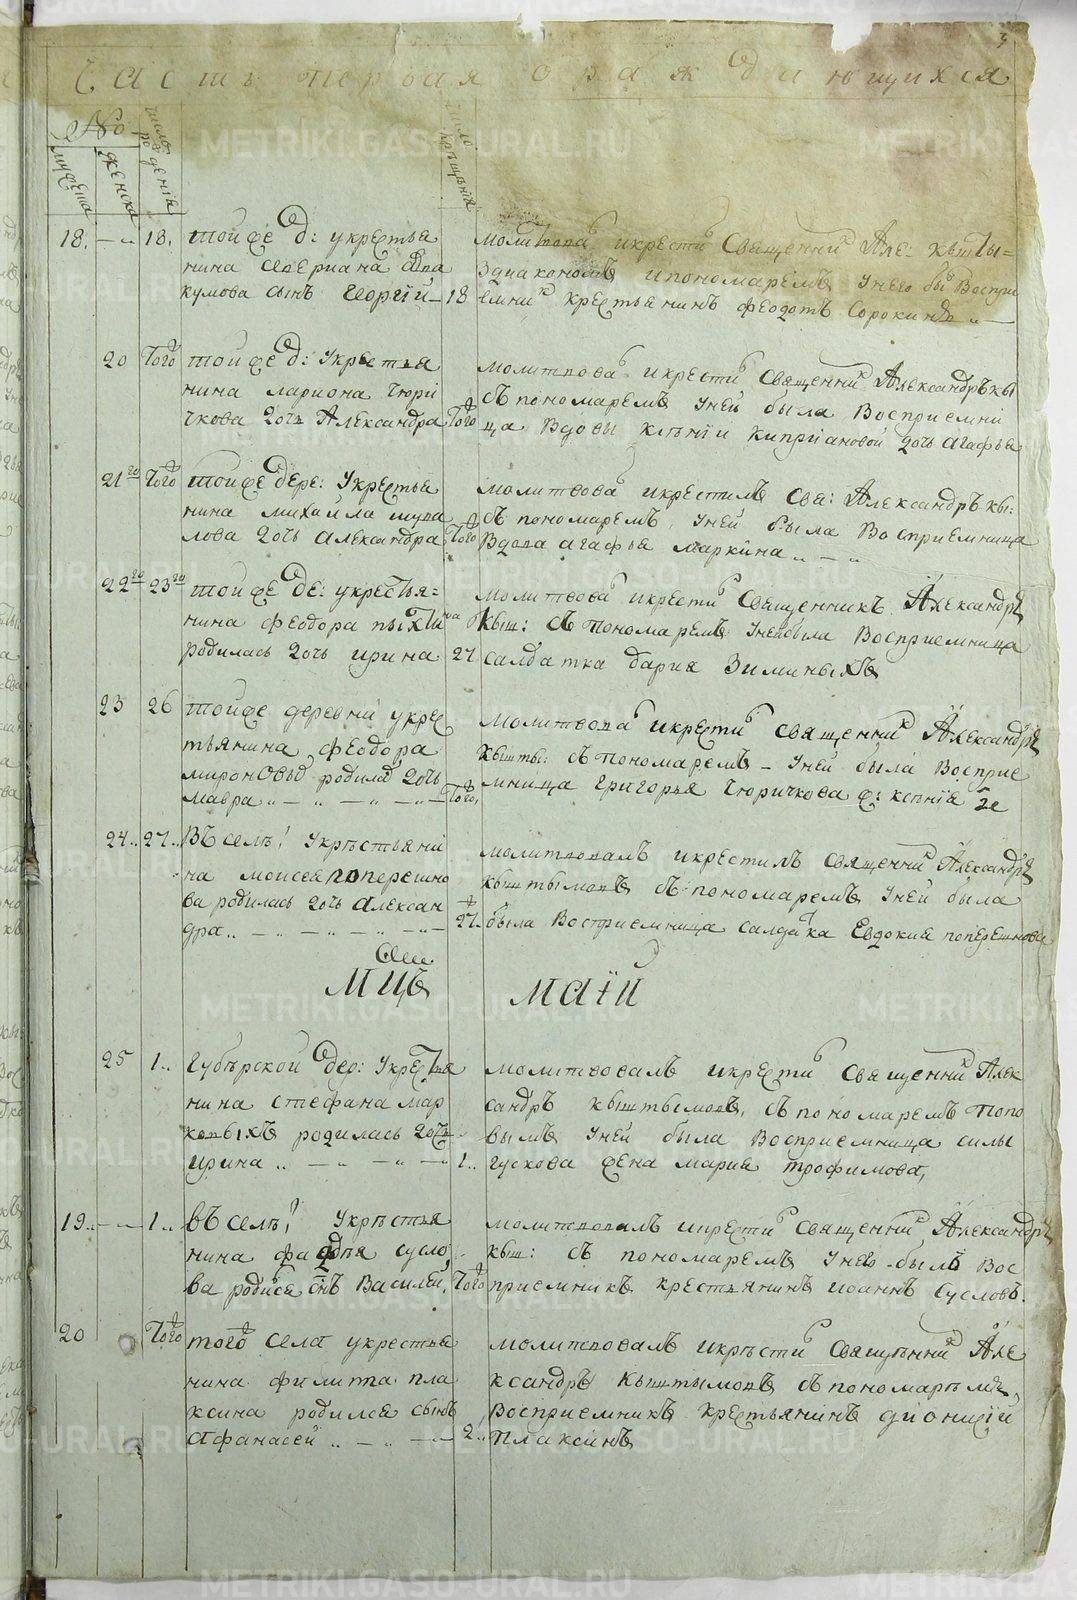 3
Часть первая о раждающихся
№
мужеска
женска
число рожденія
число крещенія
18. — 18. тойже д: у крестья
нина Аввакумова сынъ Георгій — 18
молитвова и крести Священникъ Але: Кышты=
з діакономъ и пономаремъ у него бы воспри
емник крестьянинъ Феодотъ Сорокинъ
20 того тойже д: у крестья
нина Лариона Чюри
чкова дочь Александра того
молитвова и крести священник Александръ Кы
съ пономаремъ у ней была восприемни
ца вдовы Киприановой дочь Агафья
21го того тойже дере: у крестья
нина Михайла Шува
лова дочь Александра того
молитвова и крестилъ свя: Александръ Кы:
съ пономаремъ, у ней была восприемница
вдова Агафья Маркина
22го 23го тойже де: у крестья=
нина Феодора
родилась дочь Ирина 27
молитвова и крести Священникъ Александръ
Кыш: съ пономаремъ у ней была восприемница
салдатка Дария Зиминыхъ
23 26 тойже деревни у крес
тьянина Феодора
Миронова родилась дочь
Мавра — того,
молитвова и крести священник Александръ
Кышты: съ пономаремъ — у ней была восприе
мница Григорья Чюричкова ж: Ксѣнія
24.. 27.. Въ селѣ! у крѣстьяни
на Моисея Поперешно
ва родилась дочь Алексан
дра.. — 27.
молитвовалъ и крестилъ священник Александръ
Кыштымовъ съ пономаремъ у ней была
была восприемница салдатка Евдокия Поперешнова
Мцъ Маій
25 1.. Губѣрской дер: у крестья
нина Стефана Мар
ковыхъ родилась дочь
Ирина .. — 1..
молитвовалъ и крести священник Алек
сандръ Кыштымовъ, съ пономаремъ Попо
вымъ у ней была восприемница Силы
Гускова жена Мария Трофимова,
19.. — 1.. въ селѣ! у крѣстья
нина Фадѣя Сусло
ва родися снъ Василей, того
молитвовалъ и крести священник Александръ
Кыш: съ пономаремъ у него былъ вос
приемникъ крестьянинъ Иоаннъ Сусловъ.
20 того того села у крестья
нина Филиппа Пла
ксина родился сынъ
Афанасей .. — 2..
молитвовалъ и крѣсти Священник Але
ксандръ Кыштымовъ съ пономарѣмъ,
восприемникъ крестьянинъ Дионисій
Плаксинъ
METRIKI.GASO-URAL.RU